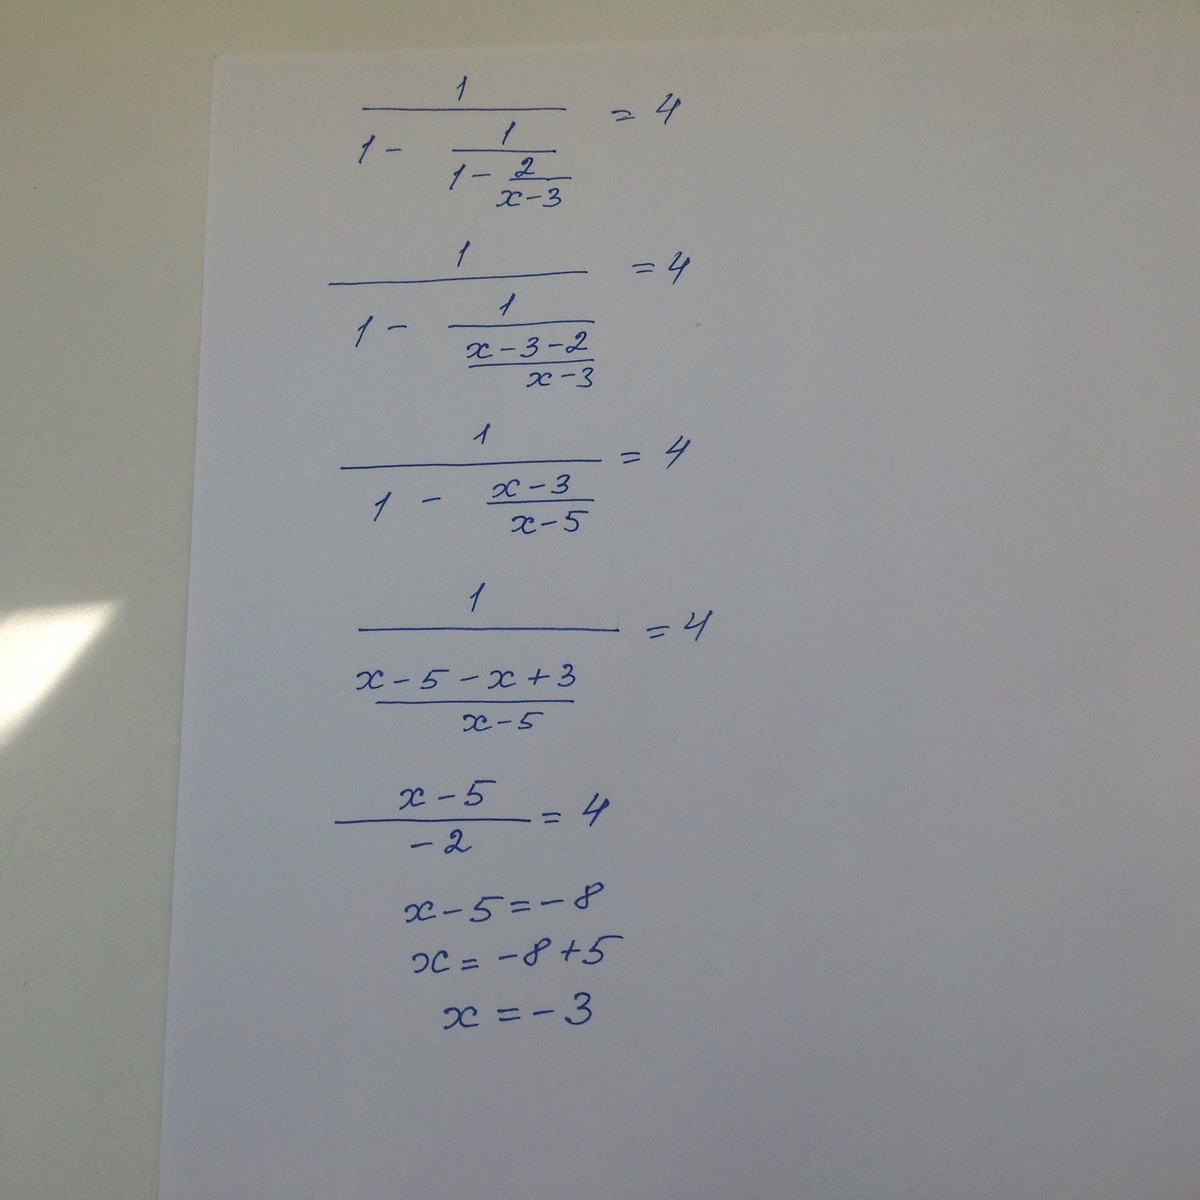 1/(1 - 1/(1 - 2/(x-3))) = 4
1/(1 - 1/((x-3-2)/(x-3))) = 4
1/(1 - (x-3)/(x-5)) = 4
1/((x-5-x+3)/(x-5)) = 4
(x-5)/(-2) = 4
x-5=-8
x=-8+5
x=-3